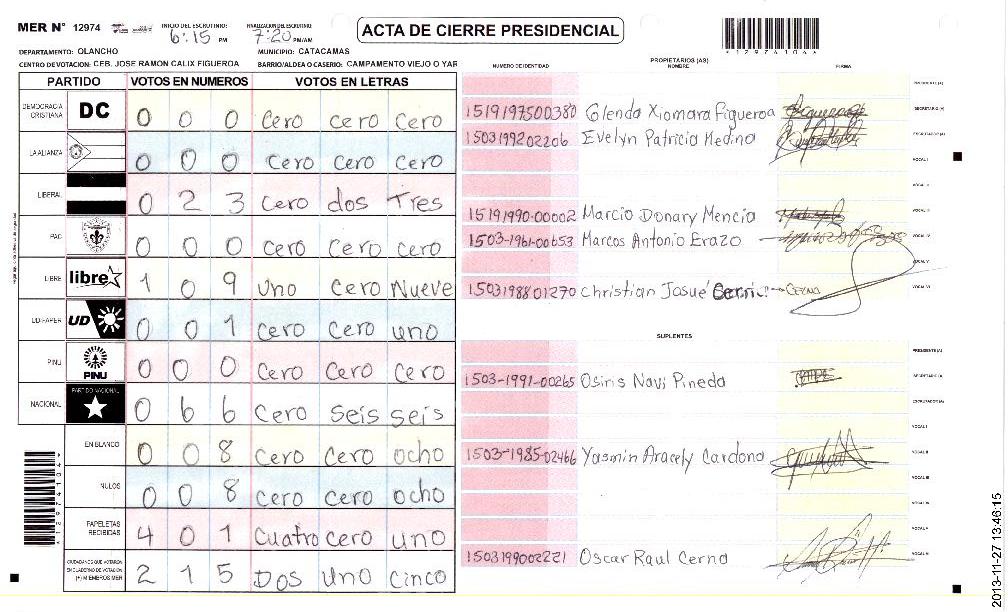 MER N° 12974
INICIO DEL ESCRUTINIO: 6:15 PM
FINALIZACION DEL ESCRUTINIO: 7:20 PM/AM
ACTA DE CIERRE PRESIDENCIAL
*12974104*
DEPARTAMENTO: OLANCHO
MUNICIPIO: CATACAMAS
CENTRO DE VOTACION: CEB. JOSE RAMON CALIX FIGUEROA
BARRIO/ALDEA O CASERIO: CAMPAMENTO VIEJO O YAR
PARTIDO VOTOS EN NUMEROS VOTOS EN LETRAS
DEMOCRACIA CRISTIANA DC 0 0 0 Cero cero Cero
LA ALIANZA 0 0 0 Cero Cero Cero
LIBERAL 0 2 3 Cero dos Tres
PAC 0 0 0 Cero Cero Cero
LIBRE libre 1 0 9 Uno Cero Nueve
UD/FAPER UD 0 0 1 Cero Cero uno
PINU PINU 0 0 0 Cero Cero Cero
NACIONAL PARTIDO NACIONAL 0 6 6 Cero seis seis
EN BLANCO 0 0 8 Cero Cero ocho
NULOS 0 0 8 Cero cero ocho
PAPELETAS RECIBIDAS 4 0 1 Cuatro cero uno
CIUDADANOS QUE VOTARON EN CUADERNO DE VOTACION (+) MIEMBROS MER 2 1 5 Dos Uno Cinco
PROPIETARIOS (AS)
NUMERO DE IDENTIDAD NOMBRE FIRMA
PRESIDENTE(A)
1519197500380 Glenda Xiomara Figueroa SECRETARIO(A)
1503199202206 Evelyn Patricia Medino ESCRUTADOR(A)
VOCAL I
VOCAL II
15191990-00002 Marcio Donary Mencia VOCAL III
1503-1961-00653 Marcos Antonio Erazo VOCAL IV
VOCAL V
1503198801270 Christian Josué Cerna VOCAL VI
SUPLENTES
PRESIDENTE(A)
1503-1991-00265 Osiris Navi Pineda SECRETARIO(A)
ESCRUTADOR(A)
VOCAL I
1503-1985-02466 Yasmin Aracely Cardona VOCAL II
VOCAL III
VOCAL IV
VOCAL V
1503199002221 Oscar Raul Cerna VOCAL VI
*12974104*
2013-11-27 13:46:15